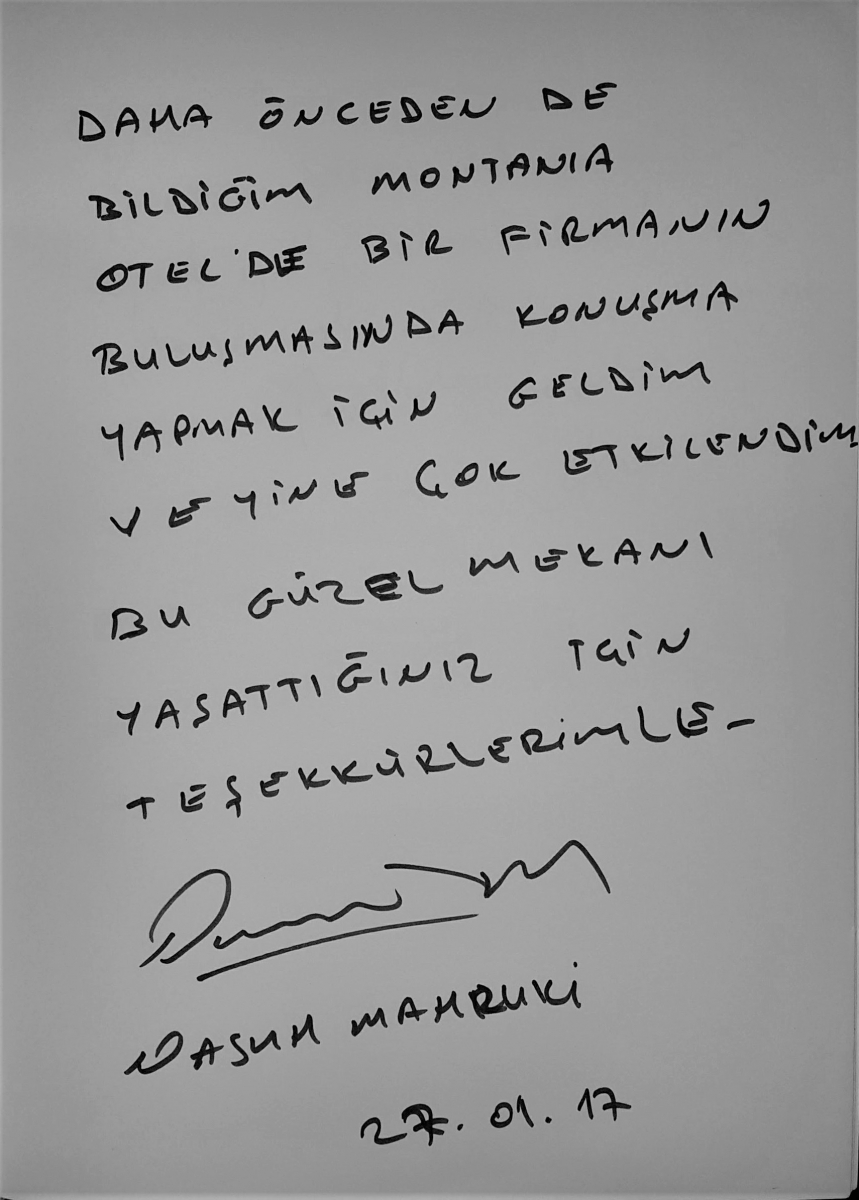 DAHA ÖNCEDEN DE
BİLDİĞİM MONTANIA
OTEL'DE BİR FİRMANIN
BULUŞMASINDA KONUŞMA
YAPMAK İÇİN GELDİM
VE YİNE ÇOK ETKİLENDİM
BU GÜZEL MEKANI
YAŞATTIĞINIZ İÇİN
TEŞEKKÜRLERİMLE-
NASUH MAHRUKİ
27.01.17